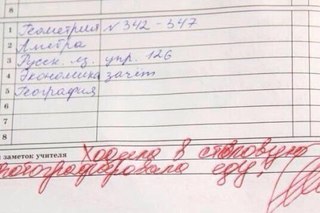 8
1 Геометрия № 342-347
2 Алгебра
3 Русск. яз. упр. 126
4 Экономика зачёт
5 География
6
7
8
заметок учителя
Ходила в столовую
фотографировала еду!